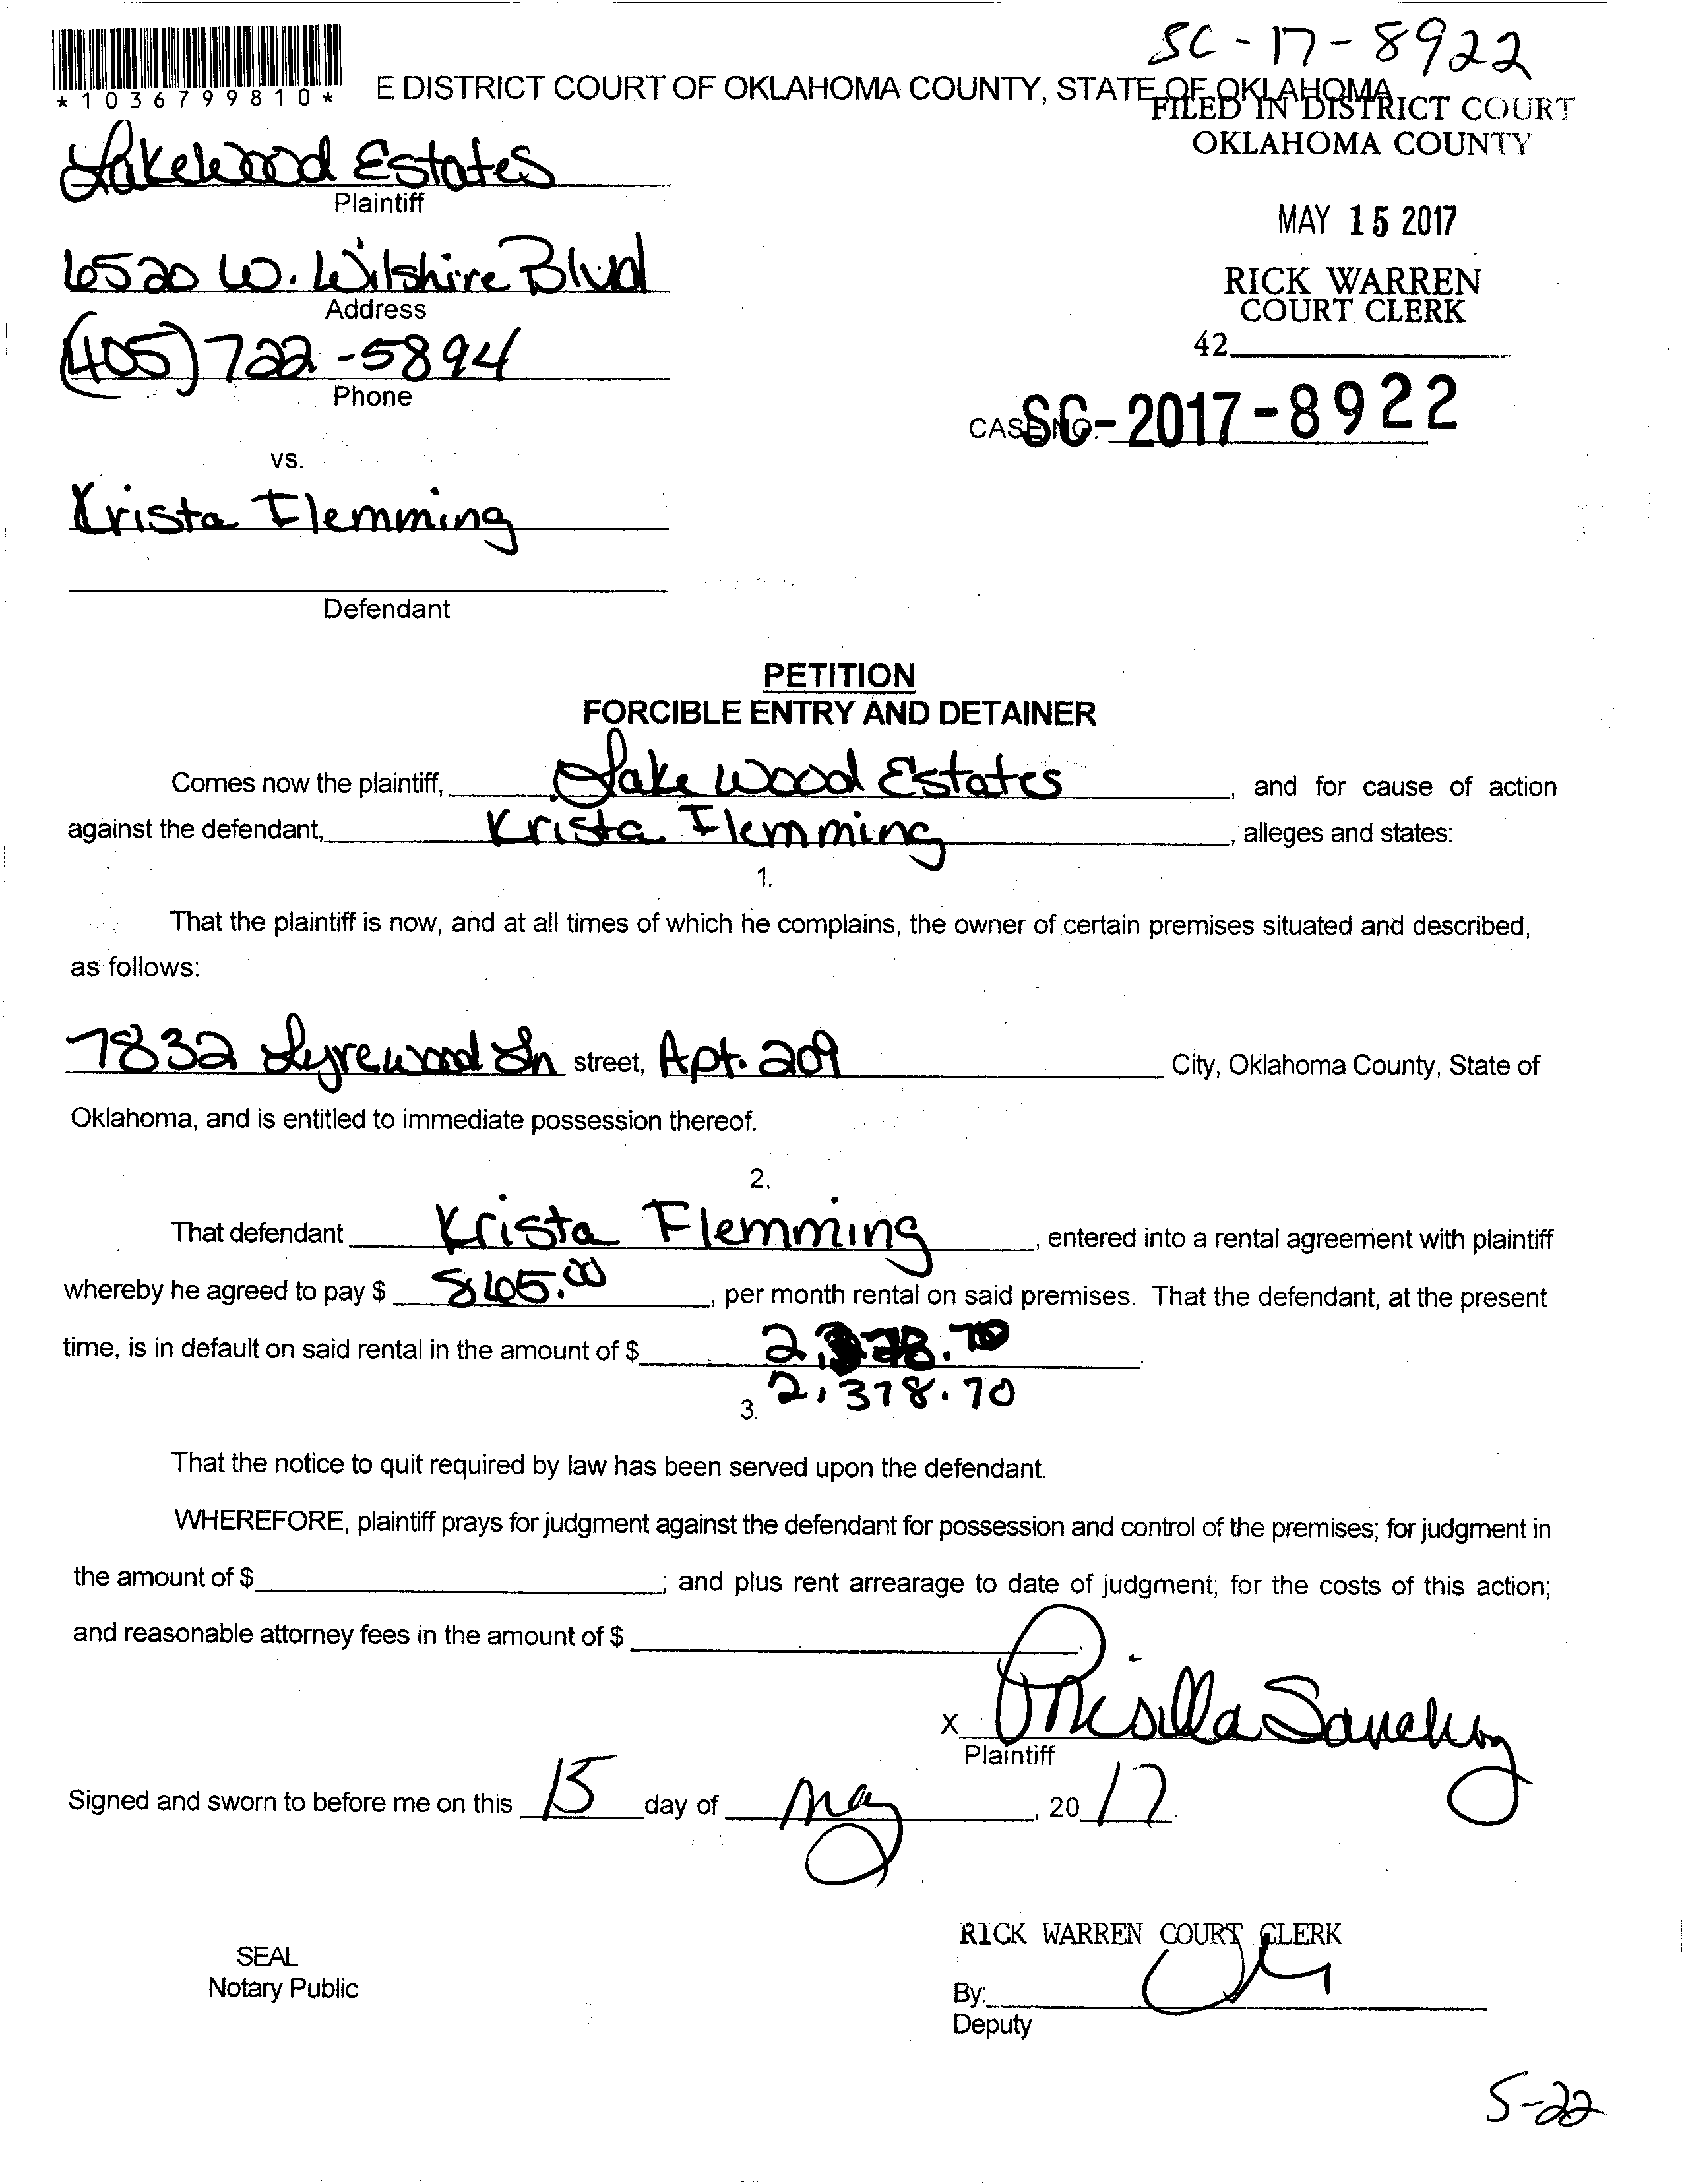 SC-17-8922
*1036799810*
E DISTRICT COURT OF OKLAHOMA COUNTY, STATE OF OKLAHOMA
FILED IN DISTRICT COURT
OKLAHOMA COUNTY
Lakewood Estates
Plaintiff
MAY 15 2017
6520 W. Wilshire Blvd
Address
RICK WARREN
COURT CLERK
(405) 722-5894
Phone
42
CASE NO. SC-2017-8922
vs.
Krista Flemming
Defendant
PETITION
FORCIBLE ENTRY AND DETAINER
Comes now the plaintiff, Lakewood Estates, and for cause of action
against the defendant, Krista Flemming, alleges and states:
1.
That the plaintiff is now, and at all times of which he complains, the owner of certain premises situated and described,
as follows:
7832 Lyrewood Ln street, Apt. 209 City, Oklahoma County, State of
Oklahoma, and is entitled to immediate possession thereof.
2.
That defendant Krista Flemming, entered into a rental agreement with plaintiff
whereby he agreed to pay $ 865.00, per month rental on said premises. That the defendant, at the present
time, is in default on said rental in the amount of $
2,378.70
3.
That the notice to quit required by law has been served upon the defendant.
WHEREFORE, plaintiff prays for judgment against the defendant for possession and control of the premises; for judgment in
the amount of $; and plus rent arrearage to date of judgment; for the costs of this action;
and reasonable attorney fees in the amount of $.
X Priscilla Sanchez
Plaintiff
Signed and sworn to before me on this 15 day of May, 2017.
RICK WARREN COURT CLERK
SEAL
Notary Public
By:
Deputy
5-22